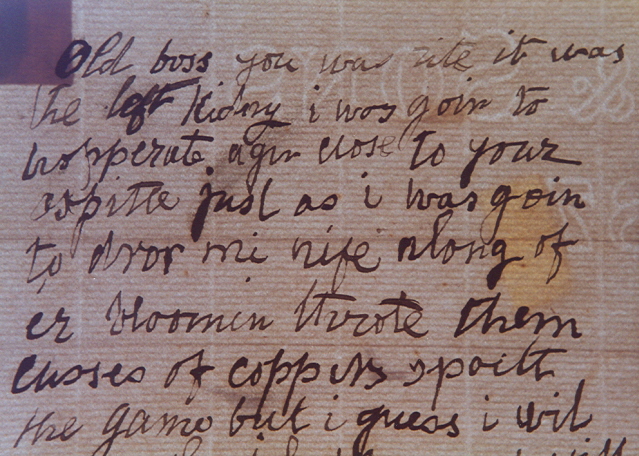 Old boss you was rite it was
the left kidny i was goin to
hopperate agin close to your
ospitle just as i was goin
to dror mi nife along of
er bloomin throte them
cusses of coppers spoilt
the game but i guess i wil